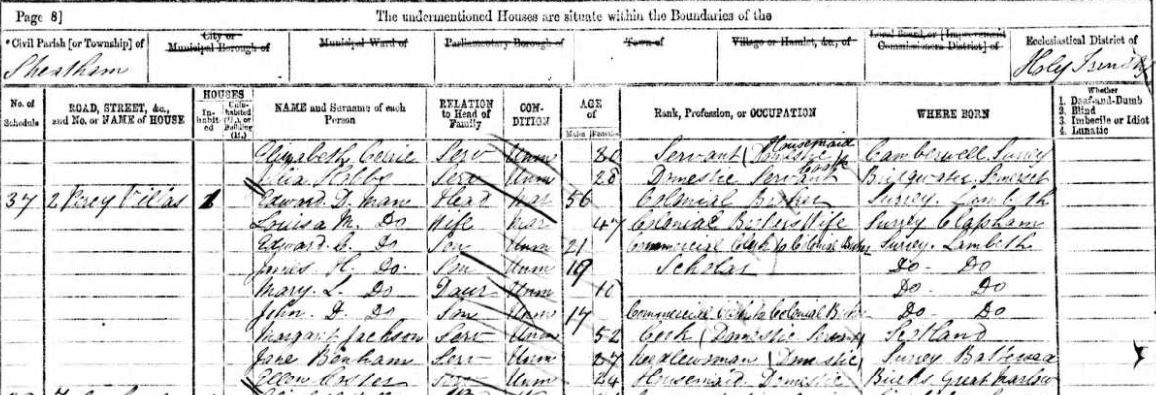 Page 8] The undermentioned Houses are situate within the Boundaries of the
*Civil Parish [or Township] of City or Municipal Borough of Municipal Ward of Parliamentary Borough of Town of Village or Hamlet, &c., of Local Board, or [Improvement Commissioners District] of Ecclesiastical District of
Holy
No. of Schedule ROAD, STREET, &c., and No. or NAME of HOUSE HOUSES Inhabited Uninhabited (U.), or Building (B.) NAME and Surname of each Person RELATION to Head of Family CONDITION AGE of Males Females Rank, Profession, or OCCUPATION WHERE BORN Whether 1. Deaf-and-Dumb 2. Blind 3. Imbecile or Idiot 4. Lunatic
Elizabeth Serv Unm 30 Servant (Domestic Housemaid Camberwell Surrey
Serv Unm 28 Domestic Servant Cook Somerset
37 2 Villas 1 Edward D. Head Mar 56 Colonial Broker Surrey. Lambeth
Louisa M. Do Wife Mar 47 Colonial Brokers Wife Surrey Clapham
Edward Do Son Unm 21 Commercial Clerk to Colonial Broker Surrey. Lambeth
James H. Do Son Unm 19 Scholar Do Do
Mary L. Do Daur Unm Do Do
John D. Do Son Unm 17 Commercial Clerk to Colonial Broker Do Do
Margaret Jackson Serv Unm 52 Cook (Domestic Servant) Scotland
Jane Benham Serv Unm Needlewoman (Domestic) Surrey Battersea
Ellen Serv Unm 24 Housemaid Domestic Bucks Great Marlow